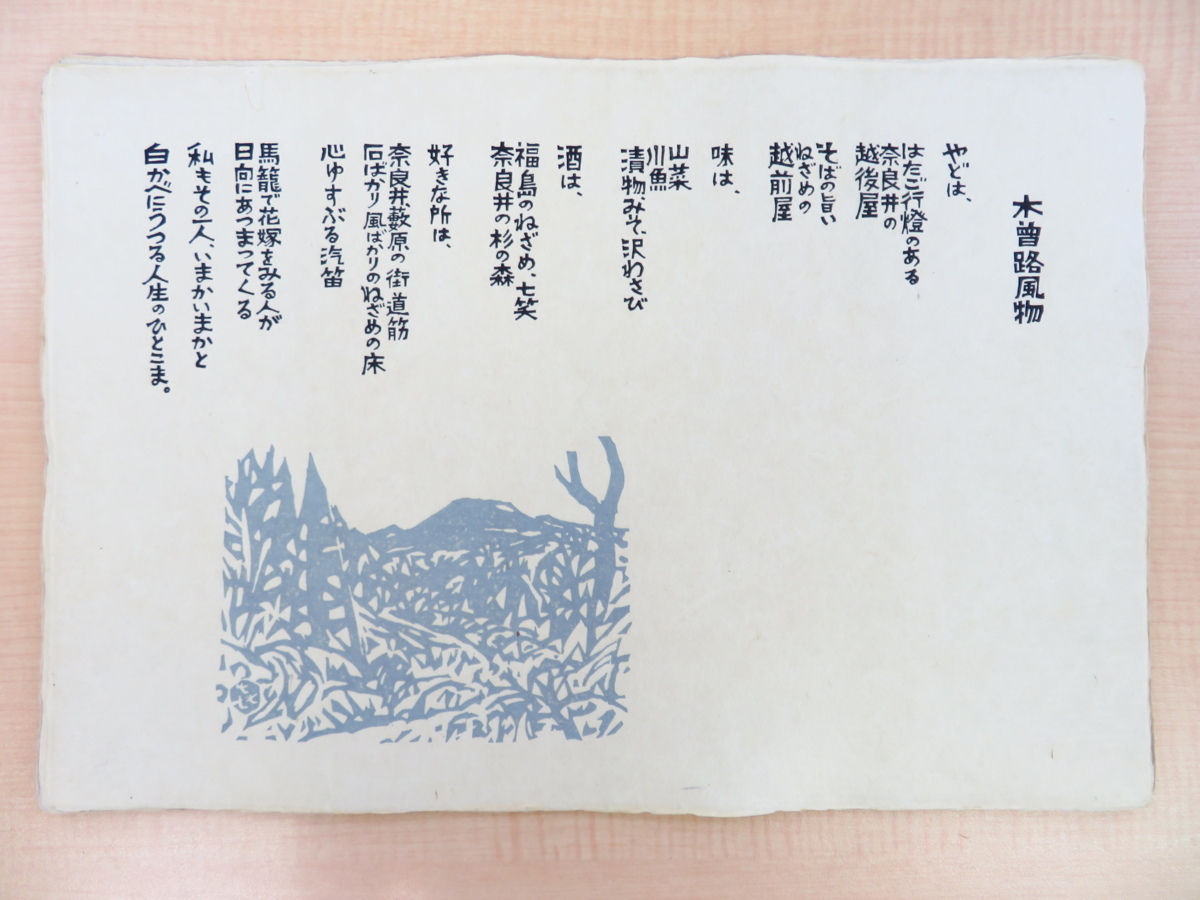 木曽路風物
やどは、
はたご行燈のある
奈良井の
越後屋
そばの旨い
ねざめの
越前屋
味は、
山菜
川魚
漬物、みそ、沢わさび
酒は、
福島のねざめ、七笑
奈良井の杉の森
好きな所は、
奈良井、藪原の街道筋
石ばかり風ばかりのねざめの床
心ゆすぶる汽笛
馬籠で花嫁をみる人が
日向にあつまってくる
私もその一人、いまかいまかと
白かべにうつる人生のひとこま。